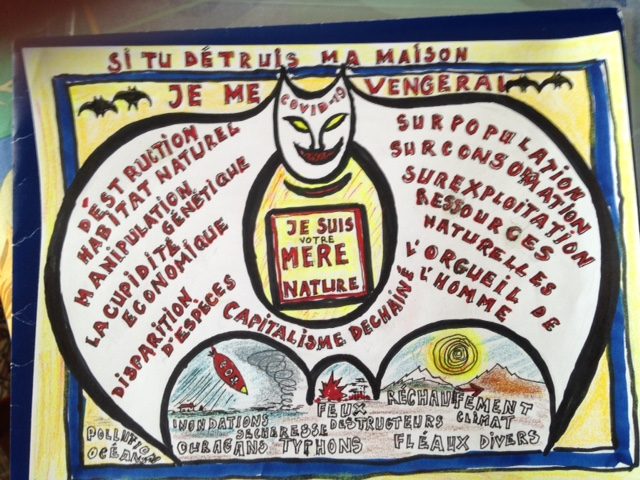 SI TU DÉTRUIS MA MAISON
JE ME VENGERAI
COVID-19
DÉSTRUCTION
HABITAT NATUREL
MANIPULATION
GÉNÉTIQUE
LA CUPIDITÉ
ECONOMIQUE
DISPARITION
D'ESPÈCES
SURPOPULATION
SURCONSOMATION
SUREXPLOITATION
RESSOURCES
NATURELLES
L'ORGUEIL DE
L'HOMME
JE SUIS
VOTRE
MÈRE
NATURE
CAPITALISME DECHAINÉ
INONDATIONS
SÉCHERESSE
OURAGANS TYPHONS
FEUX
DESTRUCTEURS
RÉCHAUFEMENT
CLIMAT
FLÉAUX DIVERS
POLLUTION
OCÉANS